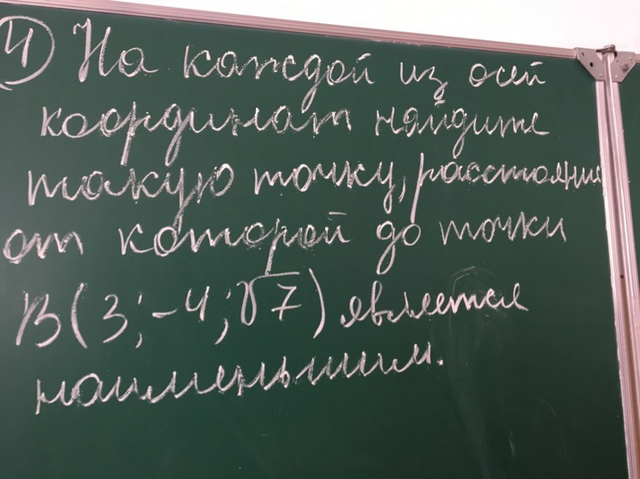 4) На каждой из осей
координат найдите
такую точку, расстояние
от которой до точки
B(3;-4;√7) является
наименьшим.